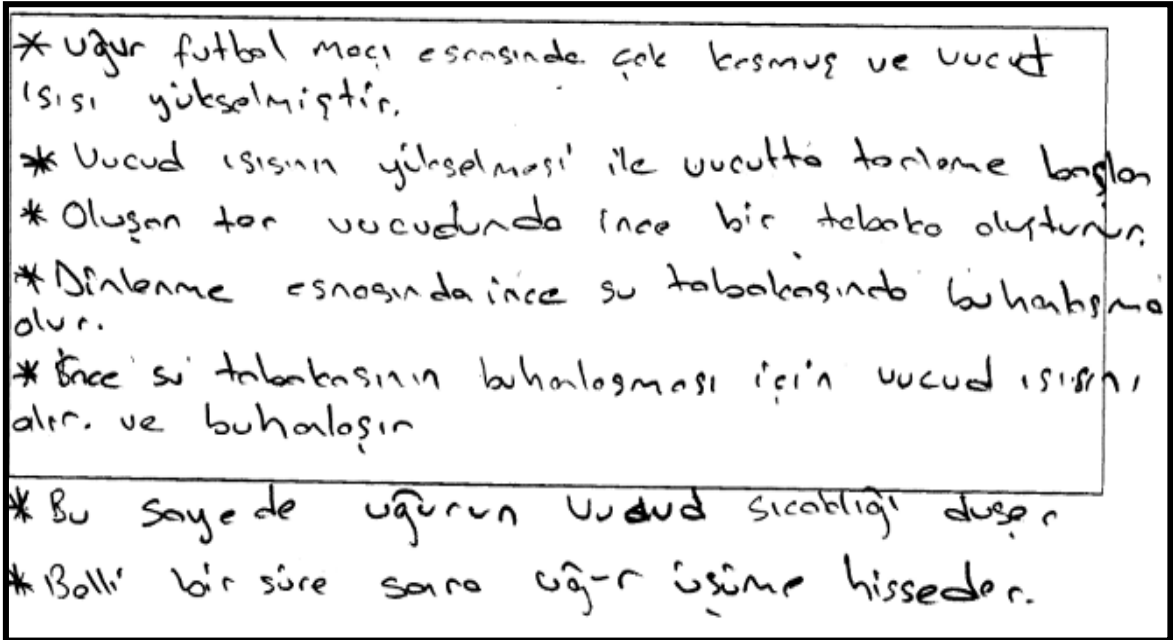 * Uğur futbol maçı esnasında çok koşmuş ve vucut
ısısı yükselmiştir.
* Vucud ısısının yükselmesi ile vucutta terleme başlar
* Oluşan ter vucudunda ince bir tabaka oluşturur.
* Dinlenme esnasında ince su tabakasında buharlaşma
olur.
* İnce su tabakasının buharlaşması için vucud ısısını
alır. ve buharlaşır
* Bu sayede uğurun vucud sıcaklığı düşer
* Belli bir süre sonra uğur üşüme hisseder.